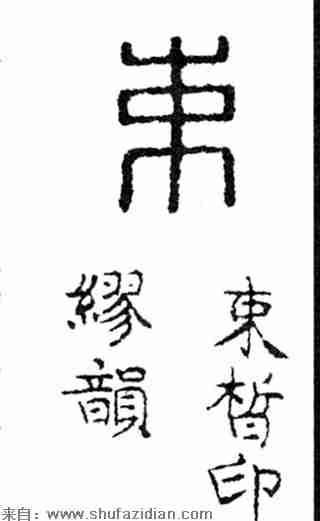 束
束晳印
繆韻
来自：www.shufazidian.com